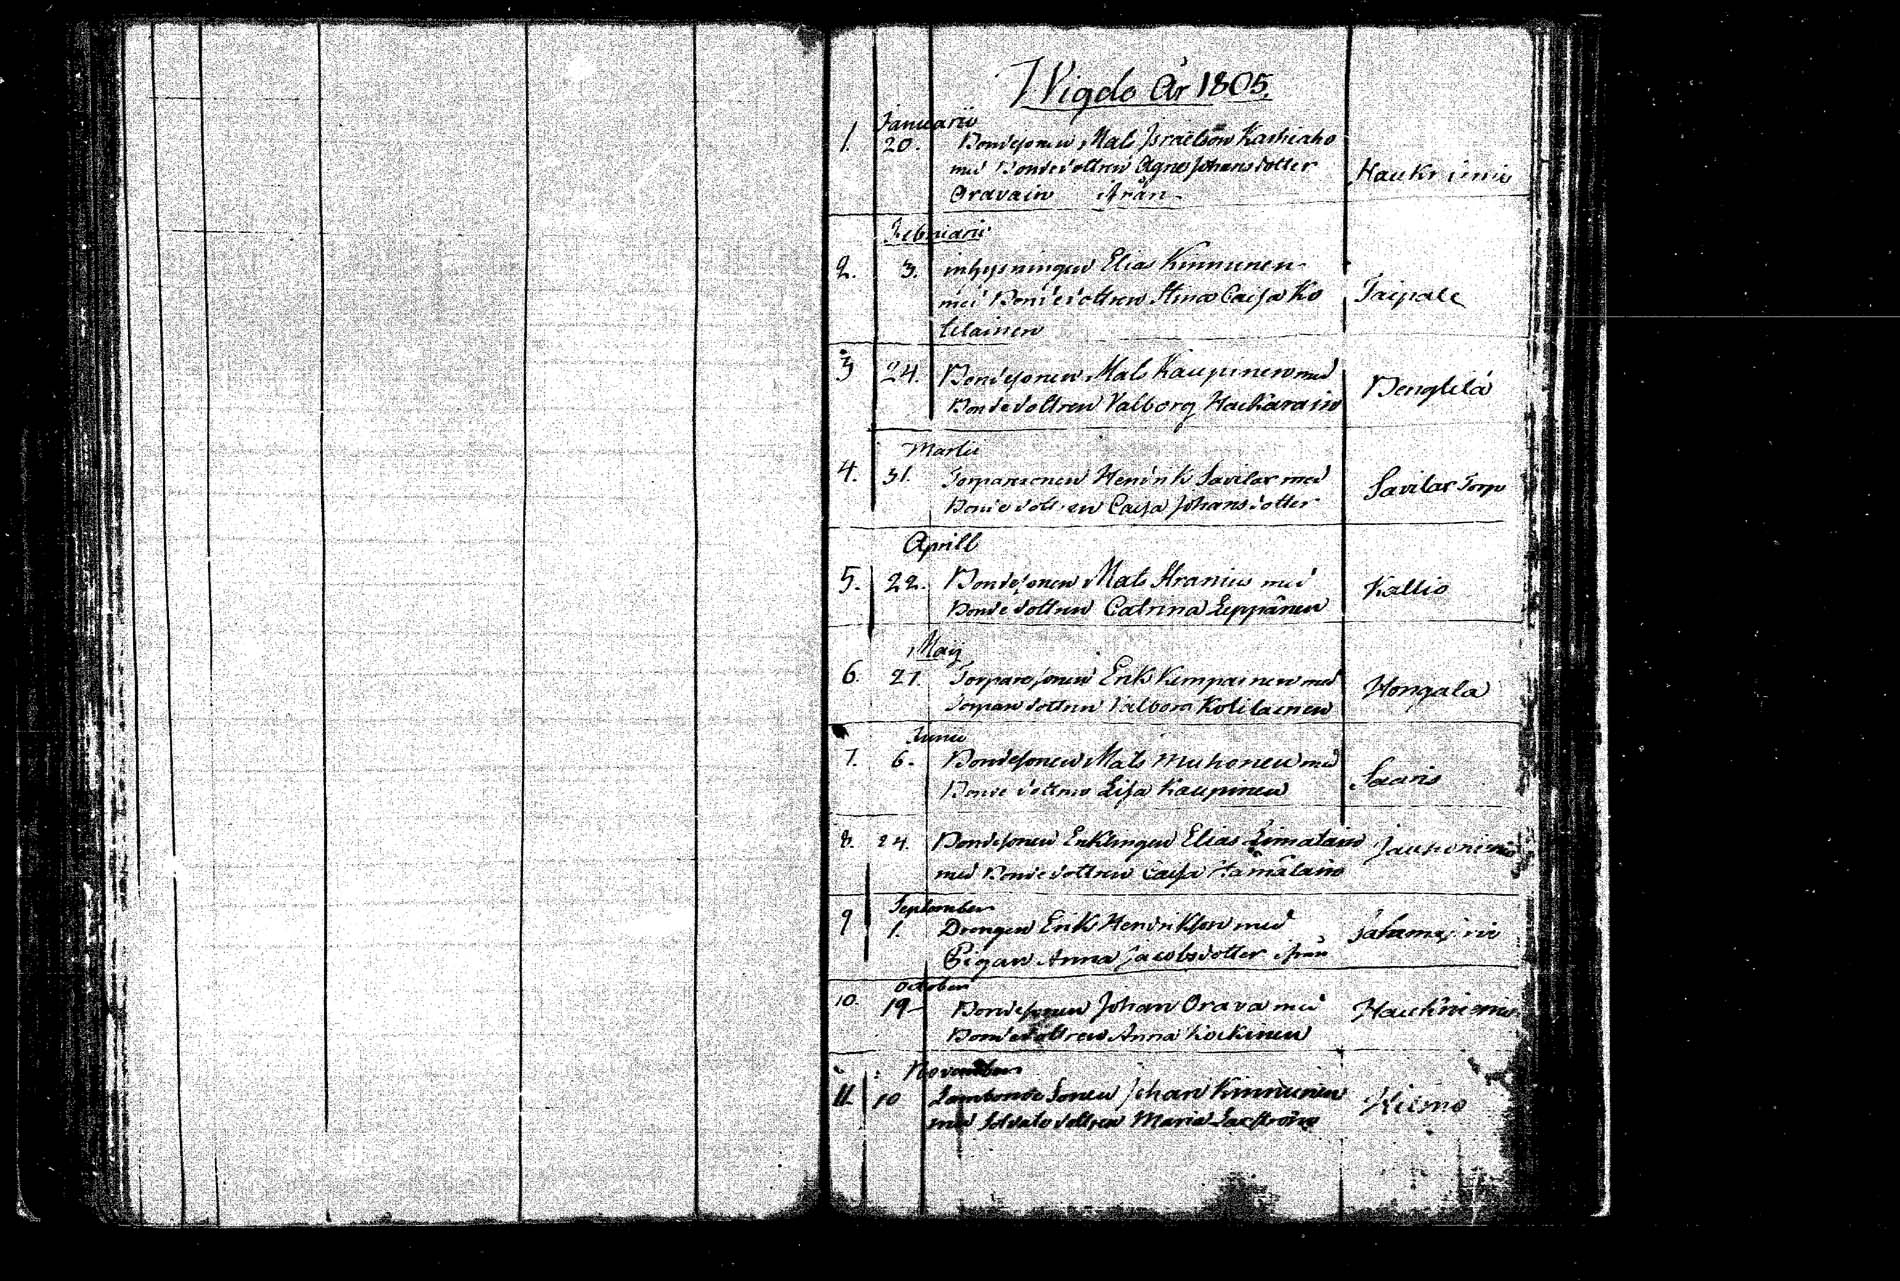 Wigde År 1805.
Januarii
1. 20. Bondesonen Mats Israelsson Kaskiaho
med Bondedottren Agnes Johansdotter
Oravain ifrån Haukiniemi
Februarii
2. 3. inhysningen Elias Kinnunen
med Bondedottren Stina Caisa Ko
lilainen Taipale
3 24. Bondesonen Mats Kaupinen med
Bondedottren Valborg Hackarain Bengtilä
Martii
4. 31. Torparesonen Henrik Savilax med
Bondedottren Caisa Johansdotter Savilax Torp
Aprill
5. 22. Bondesonen Mats Hranin med
Bondedottren Catrina Leppänen Kallio
Maij
6. 27. Torparesonen Erik Kempainen med
Torparedottren Valborg Kolilainen Hongala
Junii
7. 6. Bondesonen Mats Muhonen med
Bondedottren Lisa Kaupinen Saaris
8. 24. Bondesonen Enklingen Elias Limatain
med Bondedottren Caisa Hämäläin Jauhoniemi
September
9 1. Drengen Erik Henriksson med
Pigan Anna Jacobsdotter ifrån
October
10. 19 Bondesonen Johan Orava med
Bondedottren Anna Kockinen Haukiniemi
November
11. 10 Landbondesonen Johan Kinnunen
med Soldatsdottren Maria Laxström Kiimo